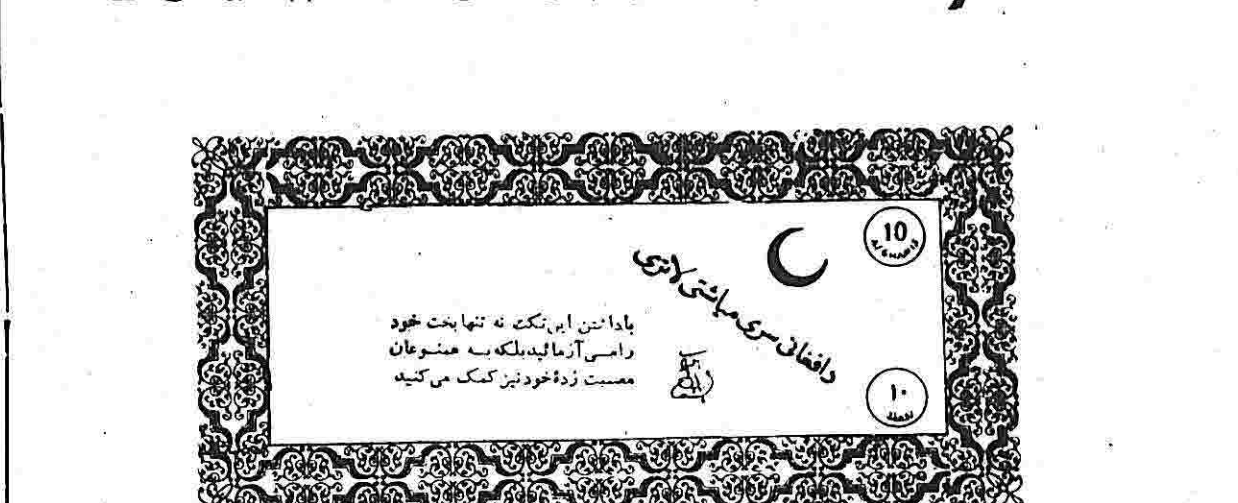 10
دافغانی سری میاشتی لاتری
باداشتن این تکت نه تنها بخت خود
رامی آزمائید بلکه به همنوعان
مصیبت زدهٔ خود نیز کمک می کنید
۱۰